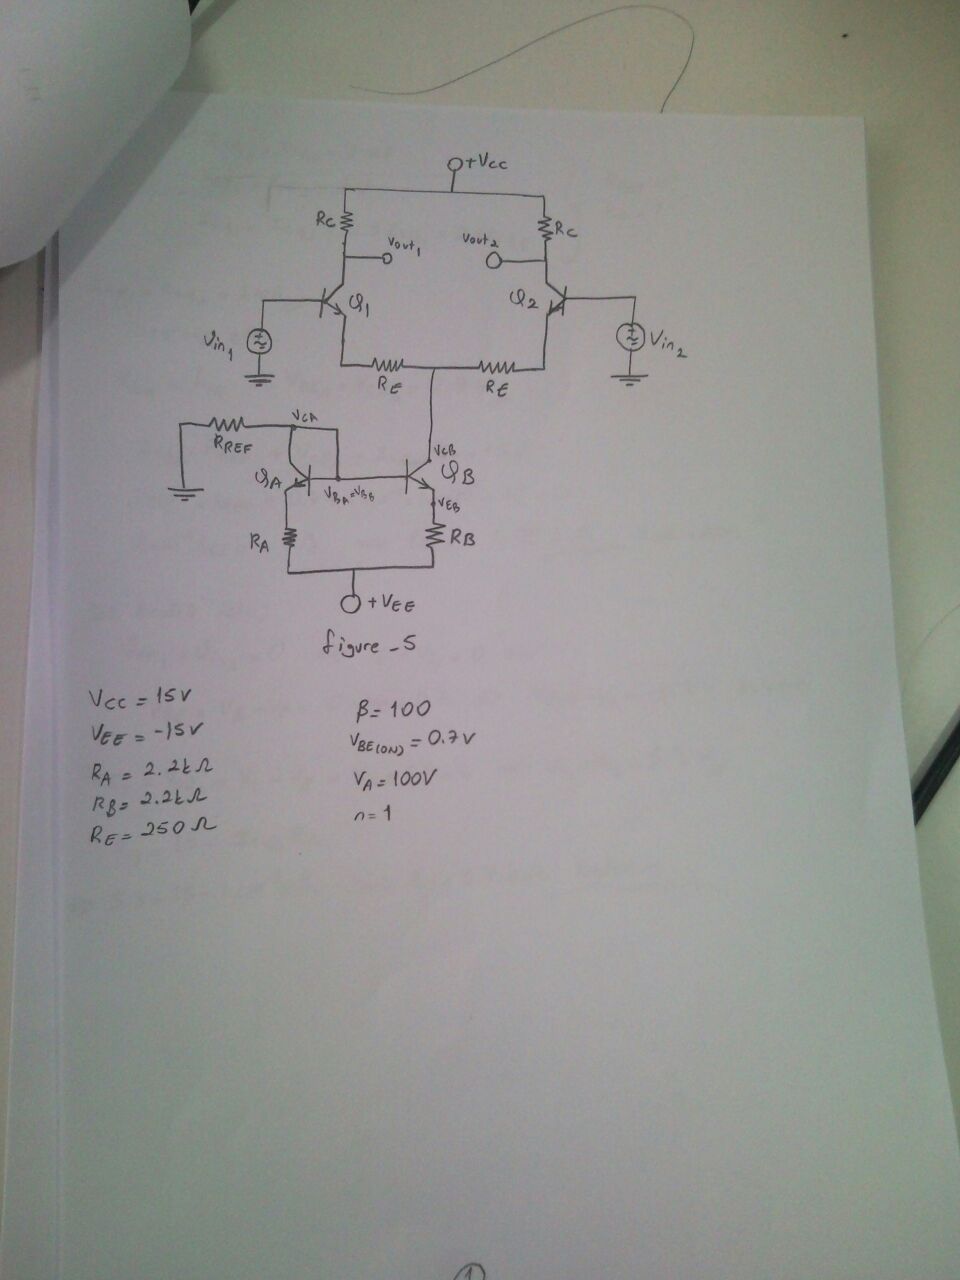 +Vcc
Rc
Rc
Vout1
Vout2
Q1
Q2
Vin1
Vin2
RE
RE
VCA
RREF
VCB
QA
QB
VBA=VBB
VEB
RA
RB
+VEE
figure-5
VCC = 15V
VEE = -15V
RA = 2.2kΩ
RB = 2.2kΩ
RE = 250Ω
β = 100
VBE(ON) = 0.7V
VA = 100V
n = 1